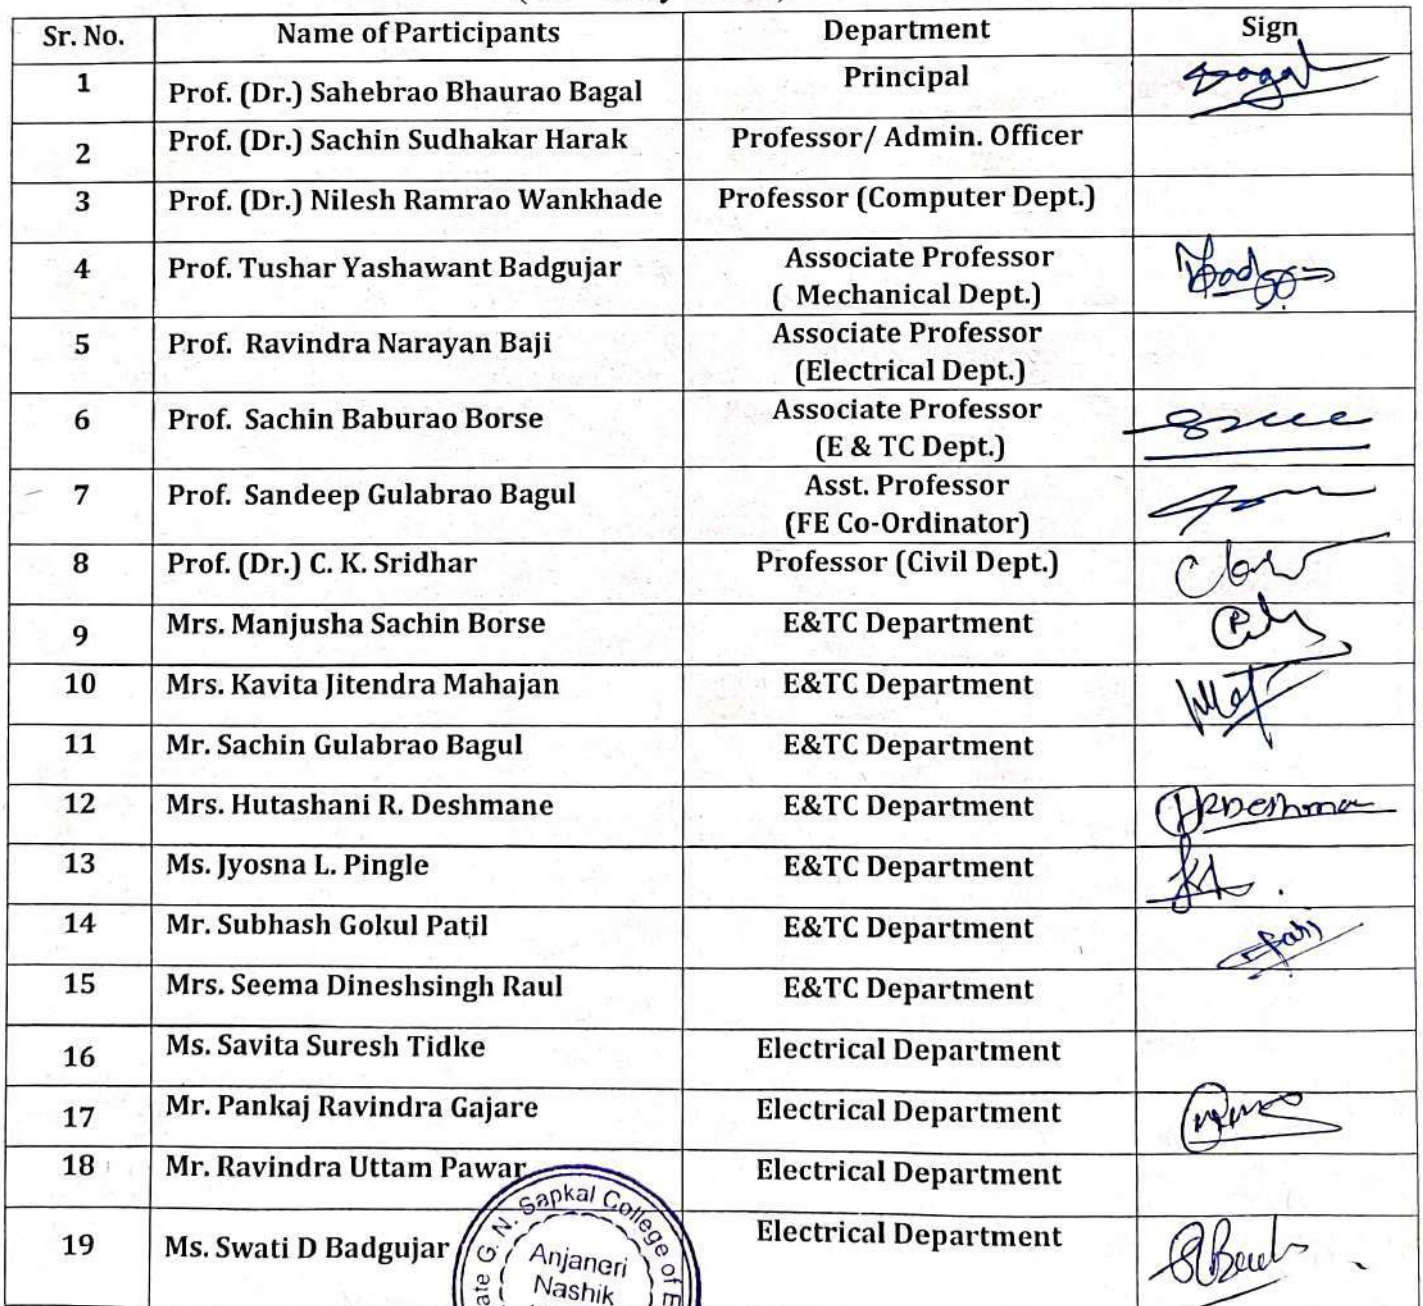 Sr. No. Name of Participants Department Sign
1 Prof. (Dr.) Sahebrao Bhaurao Bagal Principal
2 Prof. (Dr.) Sachin Sudhakar Harak Professor/ Admin. Officer
3 Prof. (Dr.) Nilesh Ramrao Wankhade Professor (Computer Dept.)
4 Prof. Tushar Yashawant Badgujar Associate Professor
( Mechanical Dept.)
5 Prof. Ravindra Narayan Baji Associate Professor
(Electrical Dept.)
6 Prof. Sachin Baburao Borse Associate Professor
(E & TC Dept.)
7 Prof. Sandeep Gulabrao Bagul Asst. Professor
(FE Co-Ordinator)
8 Prof. (Dr.) C. K. Sridhar Professor (Civil Dept.)
9 Mrs. Manjusha Sachin Borse E&TC Department
10 Mrs. Kavita Jitendra Mahajan E&TC Department
11 Mr. Sachin Gulabrao Bagul E&TC Department
12 Mrs. Hutashani R. Deshmane E&TC Department
13 Ms. Jyosna L. Pingle E&TC Department
14 Mr. Subhash Gokul Patil E&TC Department
15 Mrs. Seema Dineshsingh Raul E&TC Department
16 Ms. Savita Suresh Tidke Electrical Department
17 Mr. Pankaj Ravindra Gajare Electrical Department
18 Mr. Ravindra Uttam Pawar Electrical Department
19 Ms. Swati D Badgujar Electrical Department
G. N. Sapkal College of
Anjaneri
Nashik